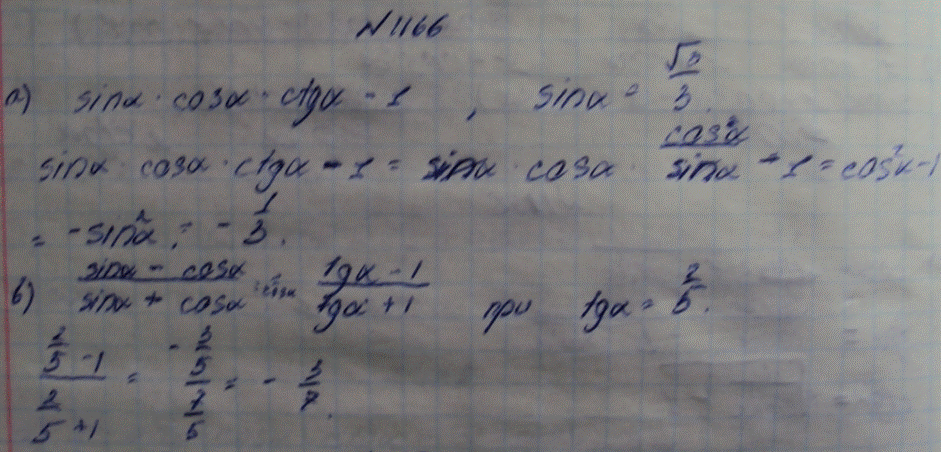 N1166
а) sinα · cosα · ctgα - 1 , sinα = √3/3.
sinα · cosα · ctgα - 1 = sinα · cosα · cosα/sinα - 1 = cos²α - 1
= - sin²α = - 1/3.
в) (sinα - cosα)/(sinα + cosα) = (tgα - 1)/(tgα + 1) при tgα = 2/5.
(2/5 - 1)/(2/5 + 1) = (- 3/5)/(7/5) = - 3/7.